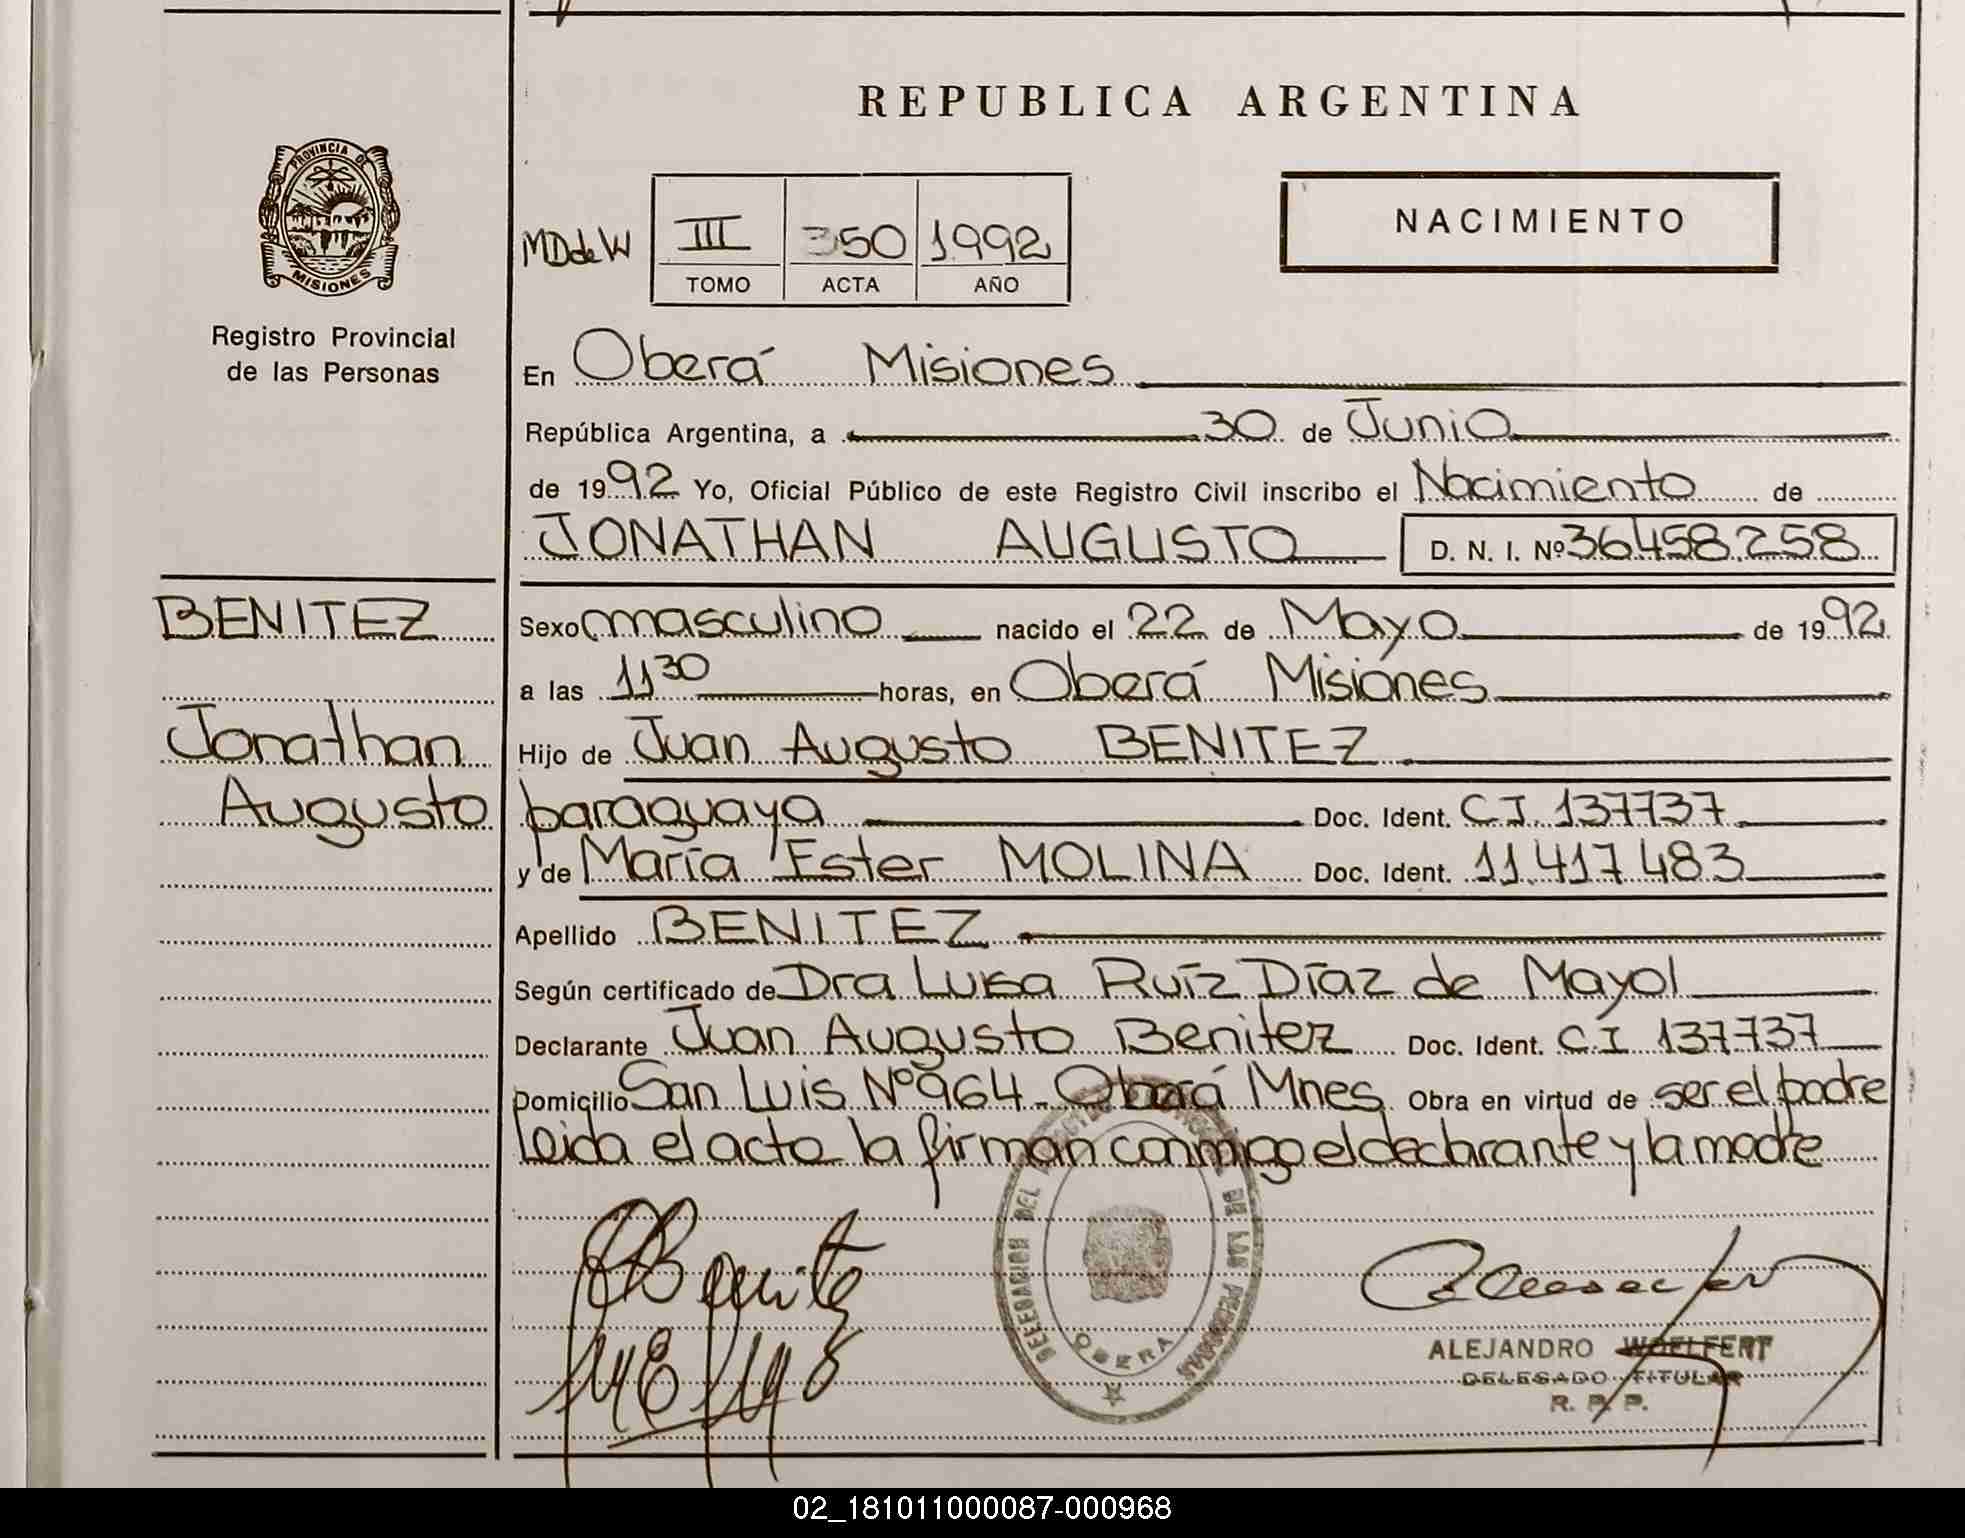 REPUBLICA ARGENTINA
PROVINCIA DE
MISIONES
Registro Provincial
de las Personas
NACIMIENTO
MD de W III 350 1992
TOMO ACTA AÑO
En Oberá Misiones
República Argentina, a 30 de Junio
de 1992 Yo, Oficial Público de este Registro Civil inscribo el Nacimiento de
JONATHAN AUGUSTO D. N. I. Nº 36458.258
BENITEZ
Jonathan
Augusto
Sexo masculino nacido el 22 de Mayo de 1992
a las 11 30 horas, en Oberá Misiones
Hijo de Juan Augusto BENITEZ
paraguaya Doc. Ident. CI. 137737
y de María Ester MOLINA Doc. Ident. 11.417.483
Apellido BENITEZ
Según certificado de Dra Luisa Ruíz Díaz de Mayol
Declarante Juan Augusto Benitez Doc. Ident. CI 137737
Domicilio San Luis Nº 964 - Oberá Mnes Obra en virtud de ser el padre
Leida el acta la firman conmigo el declarante y la madre
Benitez
DELEGACION DEL DE LAS PERSONAS
OBERA
ALEJANDRO WOELFERT
DELEGADO TITULAR
R. P. P.
02_181011000087-000968